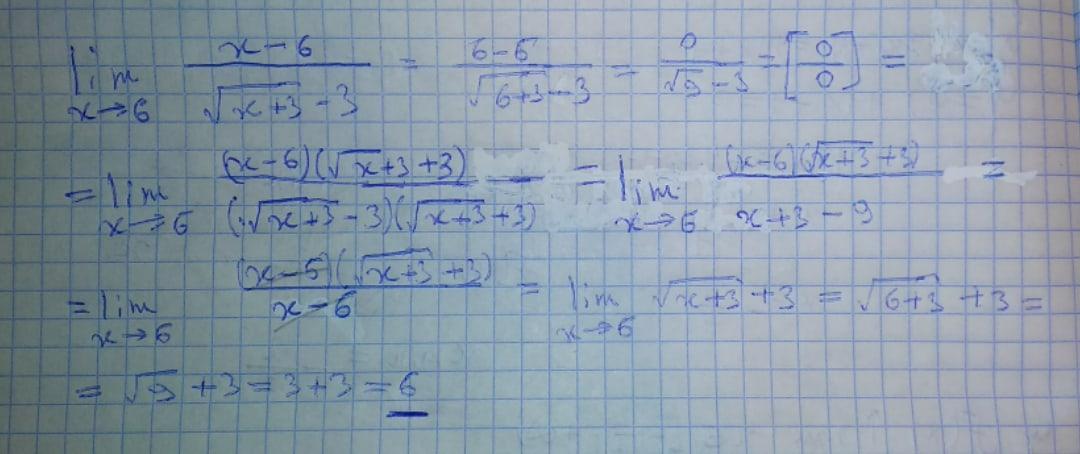 lim x→6 (x-6)/(√(x+3) -3) = (6-6)/(√(6+3) -3) = 0/(√9 -3) = [0/0] =
= lim x→6 ((x-6)(√x+3 +3))/((√(x+3) -3)(√(x+3) +3)) = lim x→6 ((x-6)(√(x+3) +3))/(x+3-9) =
= lim x→6 ((x-6)(√(x+3) +3))/(x-6) = lim x→6 √(x+3) +3 = √(6+3) +3 =
= √9 +3 = 3+3 = 6